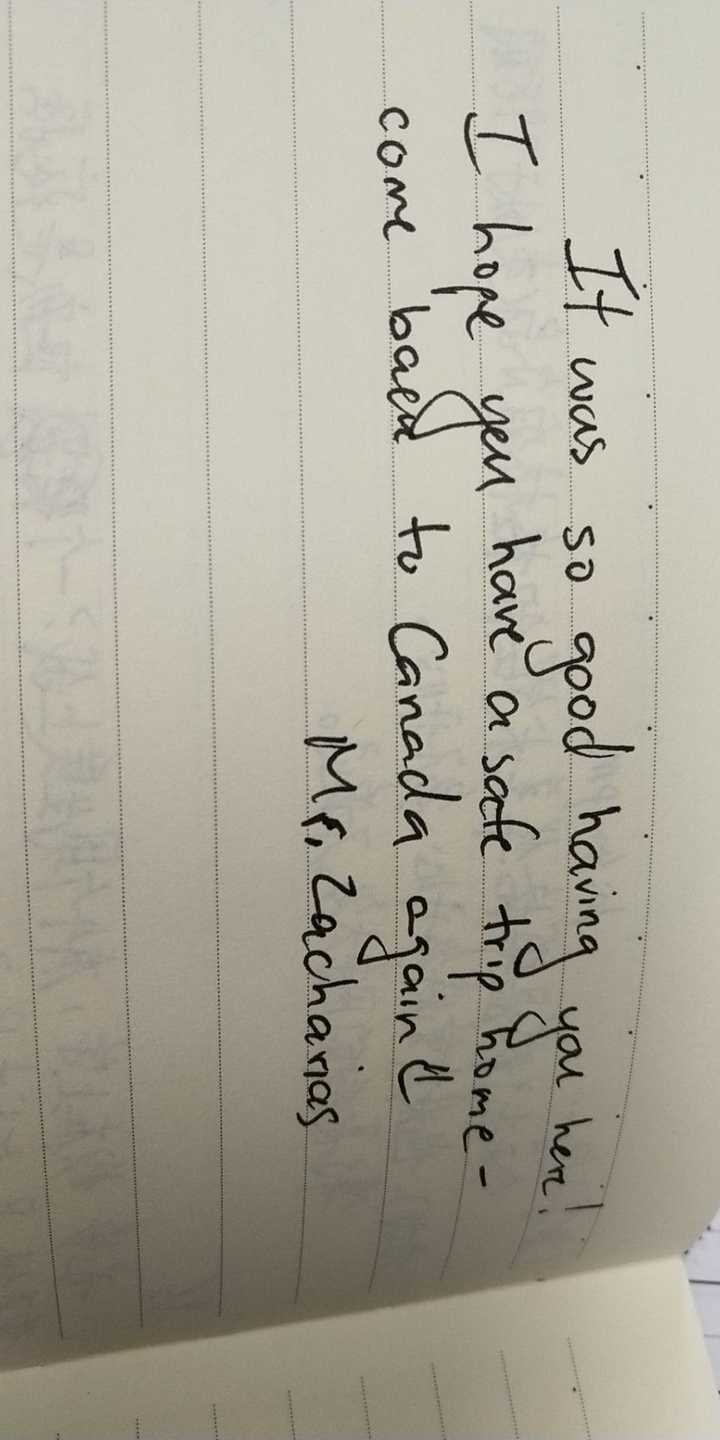 It was so good having you here!
I hope you have a safe trip home -
come back to Canada again
Mr. Zacharias